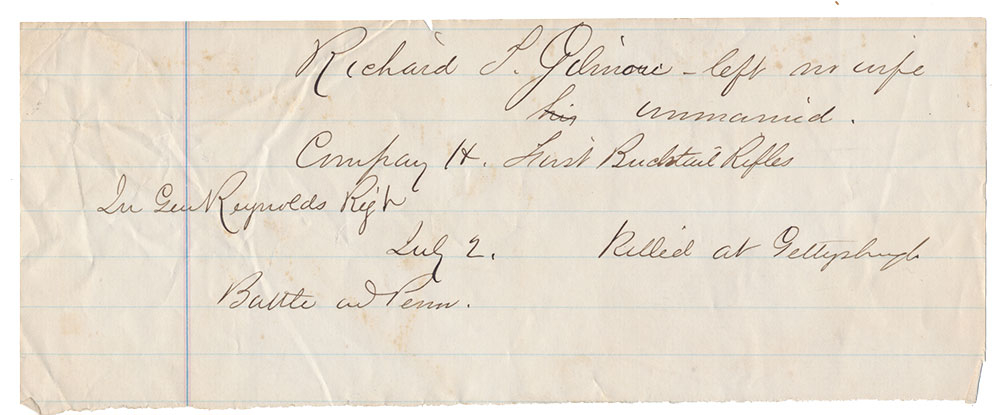 Richard S. Gilmore - left no wife
his unmarried.
Compay H. First Bucktail Rifles
In Gen Reynolds Reg't
July 2. Killed at Gettysburgh
Battle in Penn.